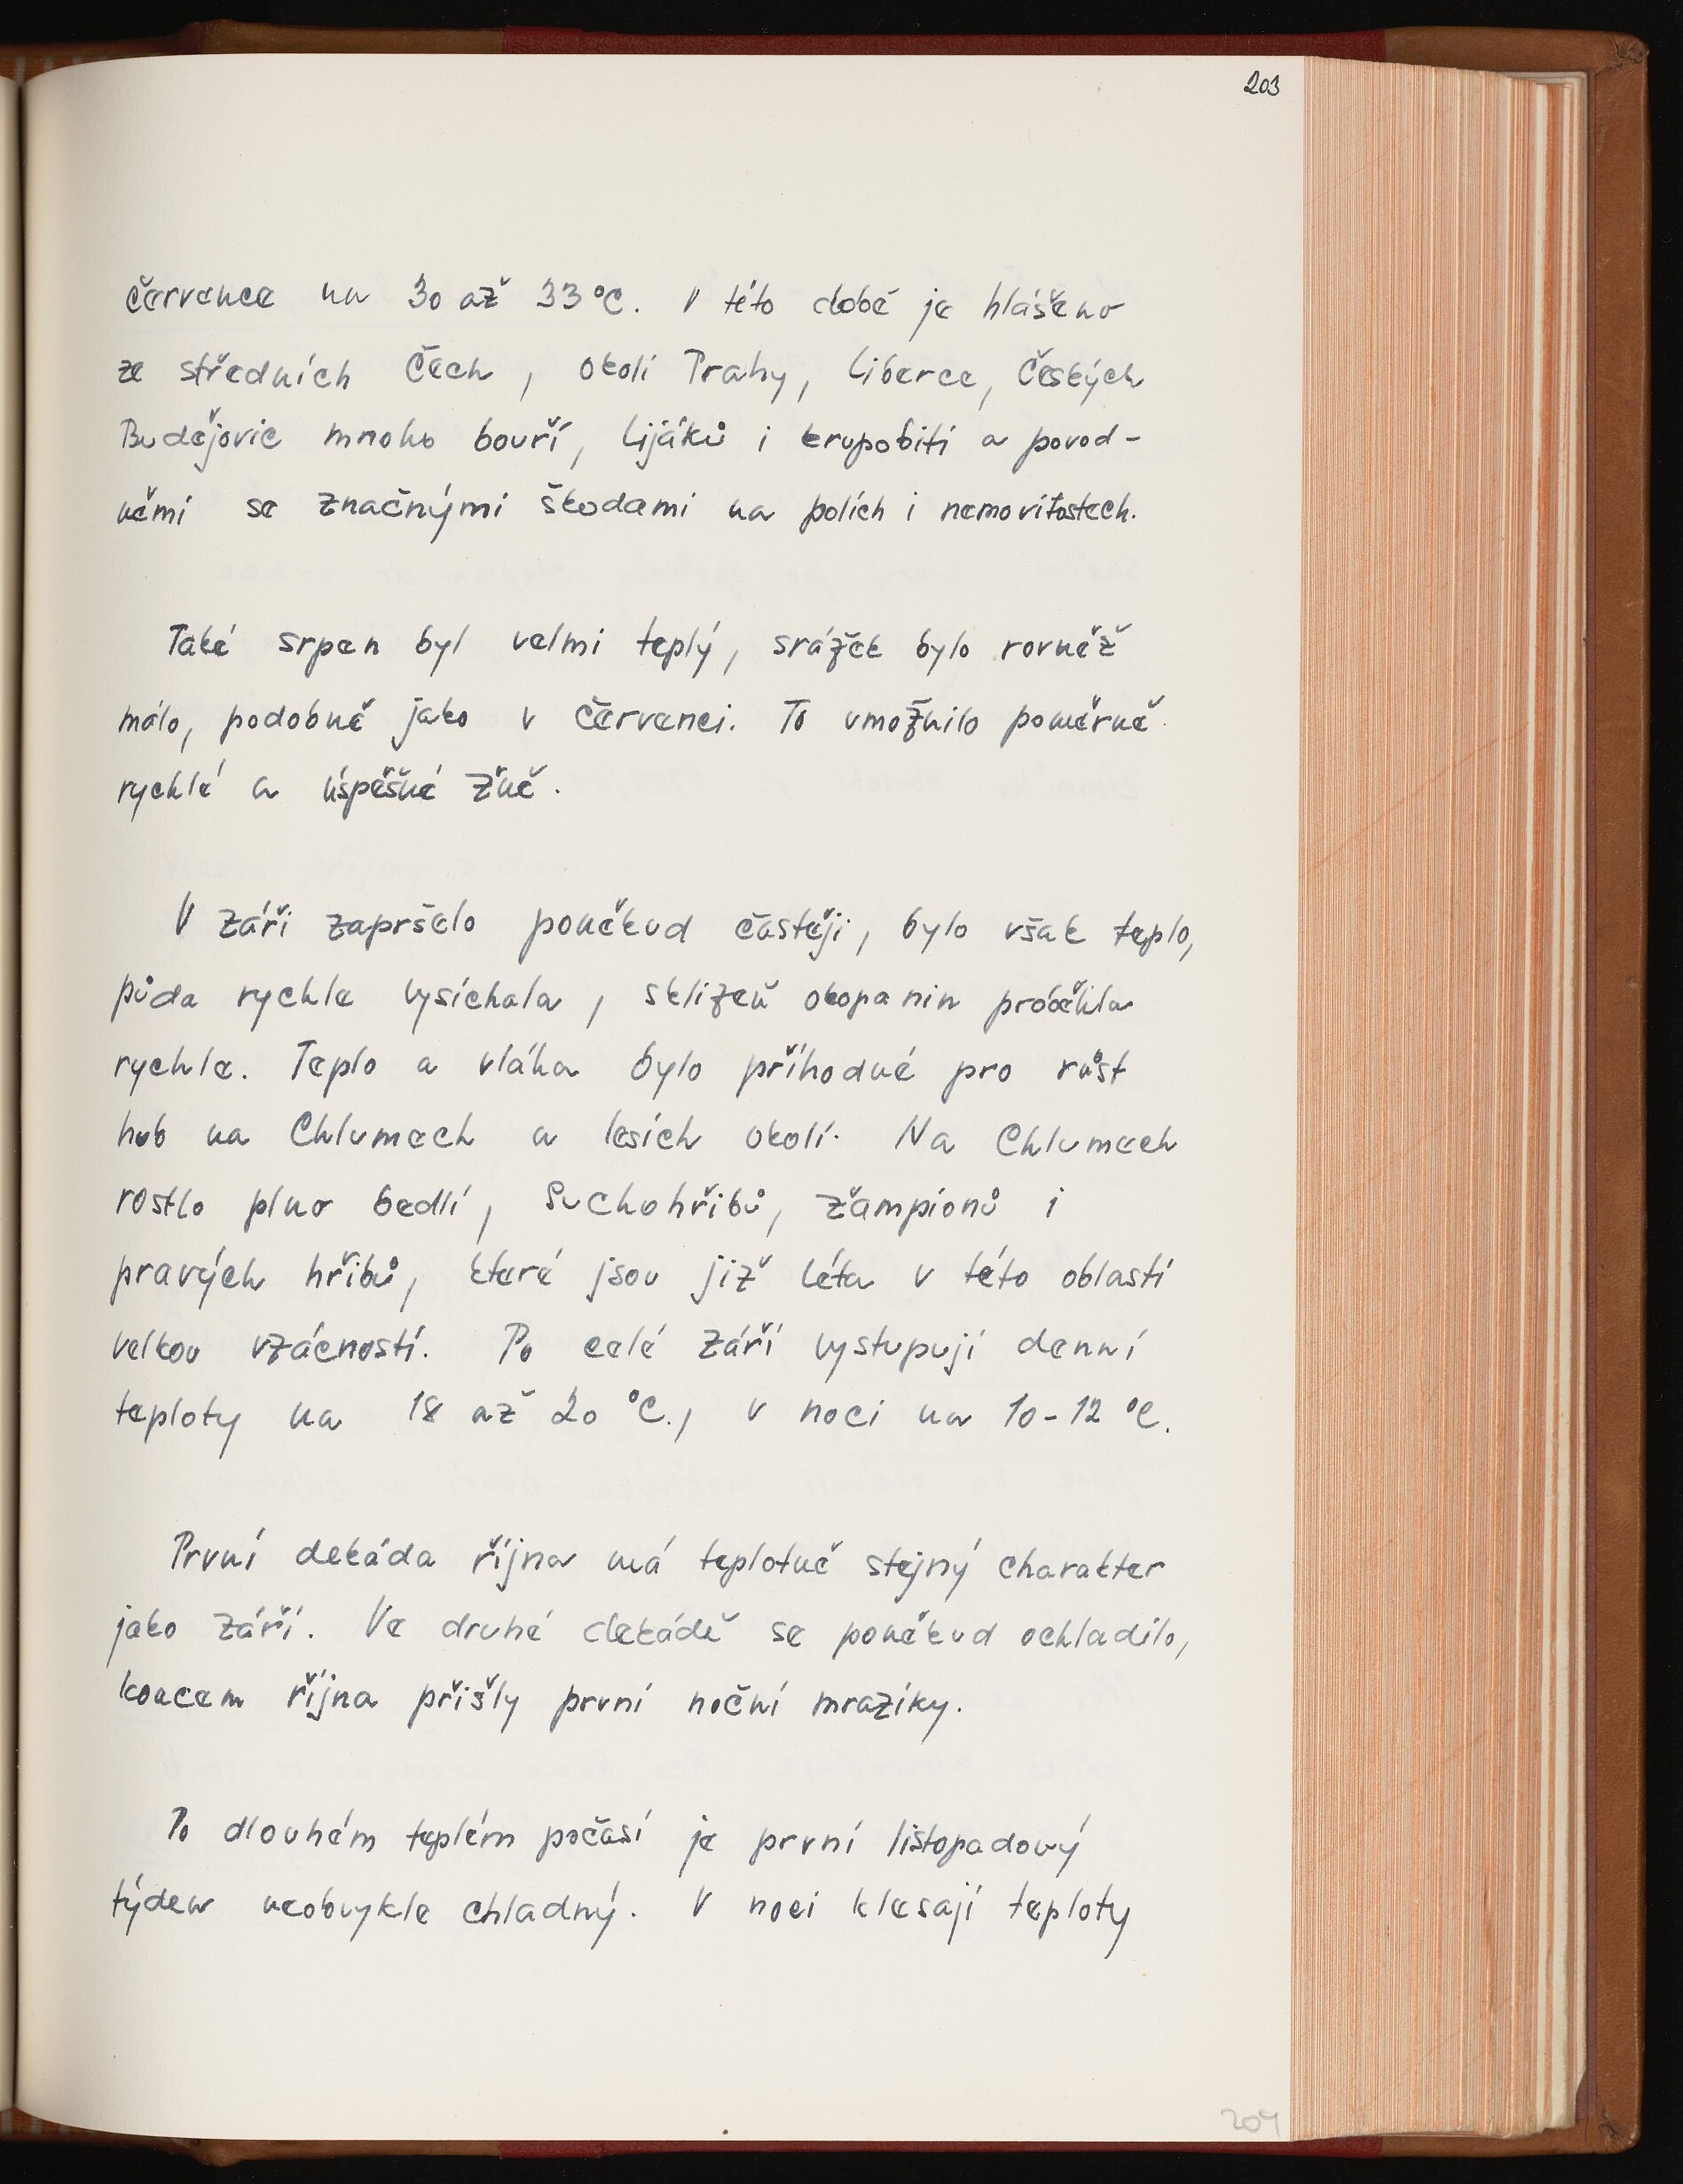 203
července na 30 až 33 °C. V této době je hlášeno
ze středních Čech, okolí Prahy, Liberce, Českých
Budějovic mnoho bouří, lijáků i krupobití a povod-
němi se značnými škodami na polích i nemovitostech.
Také srpen byl velmi teplý, srážek bylo rovněž
málo, podobně jako v červenci. To umožnilo poměrně
rychlé a úspěšné žně.
V září zapršelo poněkud častěji, bylo však teplo,
půda rychle vysíchala, sklizeň okopanin proběhla
rychle. Teplo a vláha bylo příhodné pro růst
hub na Chlumech a lesích okolí. Na Chlumech
rostlo plno bedlí, Suchohřibů, žampionů i
pravých hřibů, které jsou již léta v této oblasti
velkou vzácností. Po celé září vystupují denní
teploty na 18 až 20 °C., v noci na 10-12 °C.
První dekáda října má teplotně stejný charakter
jako září. Ve druhé dekádě se poněkud ochladilo,
koncem října přišly první noční mrazíky.
Po dlouhém teplém počasí je první listopadový
týden neobvykle chladný. V noci klesají teploty
204